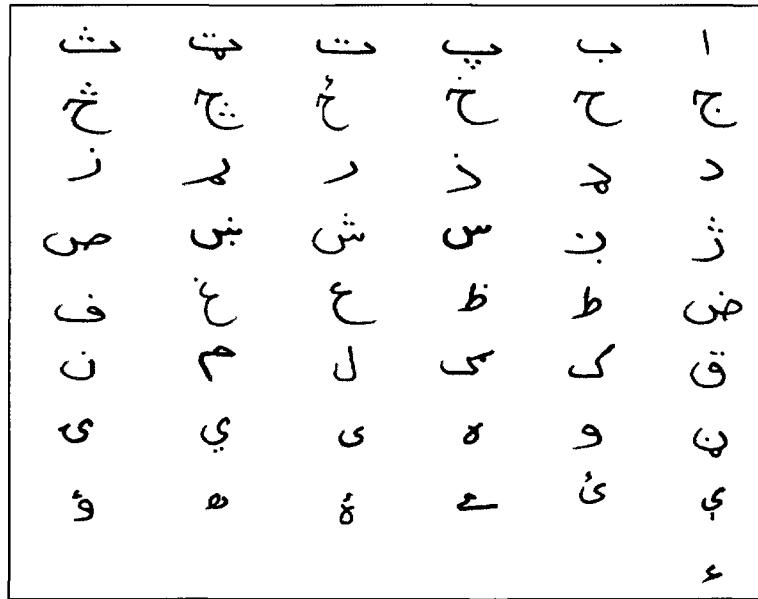 ا ب پ ت ټ ث
ج ح خ ځ چ څ
د ډ ذ ر ړ ز
ژ ږ س ش ښ ص
ض ط ظ ع غ ف
ق ک ګ ل م ن
ڼ و ه ی ي ی
ې ئ ے ۀ ھ ؤ
ء